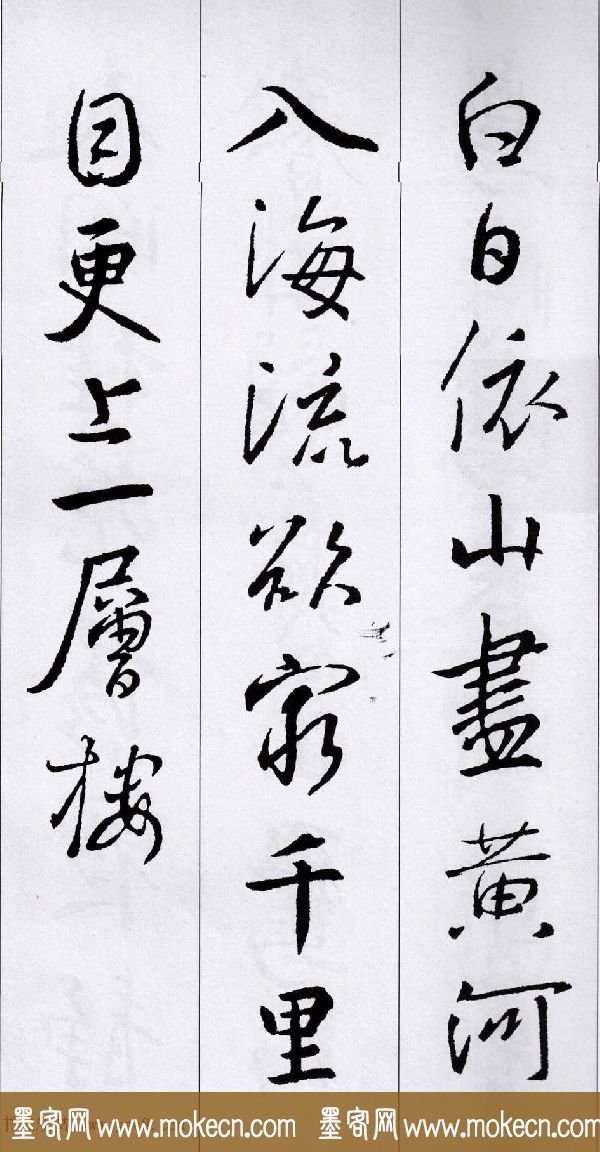 白日依山盡黄河
入海流欲窮千里
目更上一層樓
墨客网 www.mokecn.com 墨客网 www.mokecn.com